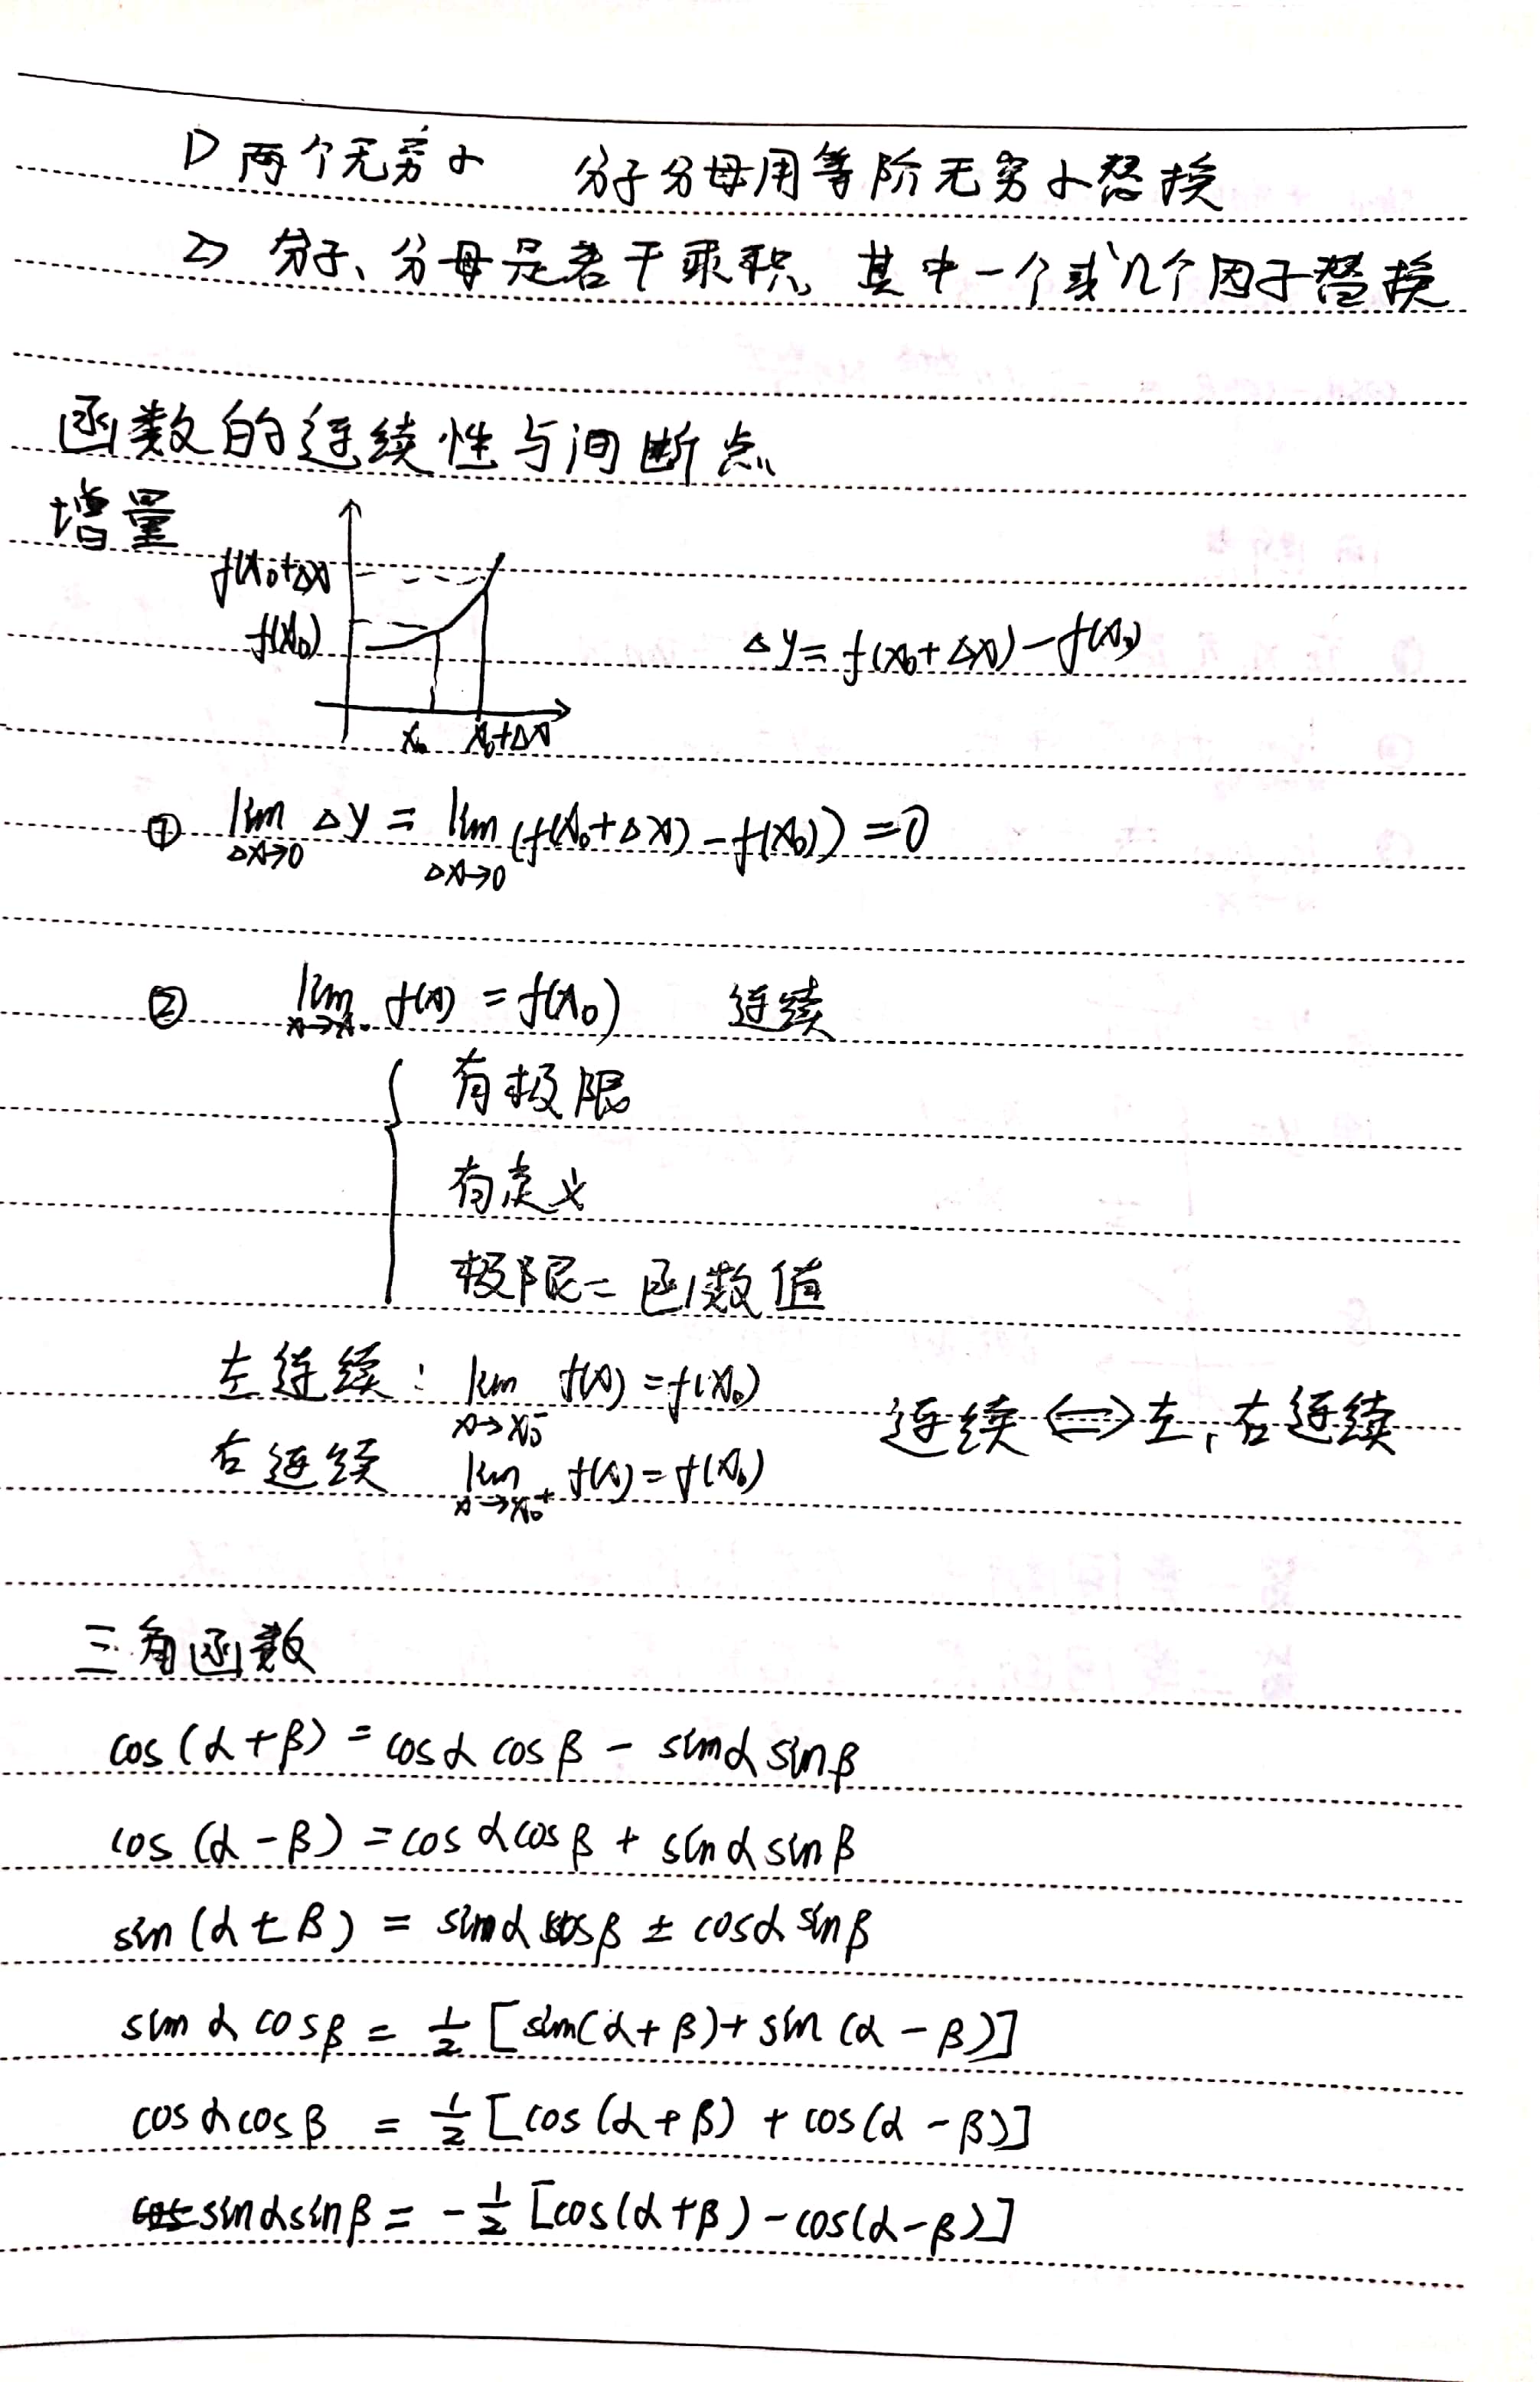 1) 两个无穷小 分子分母用等阶无穷小替换
2) 分子、分母是若干乘积, 其中一个或几个因子替换
函数的连续性与间断点
增量
f(x₀+Δx)
f(x₀)
Δy = f(x₀+Δx) - f(x₀)
x₀ x₀+Δx
① lim Δy = lim (f(x₀+Δx) - f(x₀)) = 0
Δx→0 Δx→0
② lim f(x) = f(x₀) 连续
x→x₀
有极限
有定义
极限 = 函数值
左连续: lim f(x) = f(x₀)
x→x₀⁻
连续 ⇔ 左, 右连续
右连续 lim f(x) = f(x₀)
x→x₀⁺
三角函数
cos(α+β) = cosα cosβ - sinα sinβ
cos(α-β) = cosα cosβ + sinα sinβ
sin(α±β) = sinα cosβ ± cosα sinβ
sinα cosβ = ½ [sin(α+β) + sin(α-β)]
cosα cosβ = ½ [cos(α+β) + cos(α-β)]
sinα sinβ = -½ [cos(α+β) - cos(α-β)]